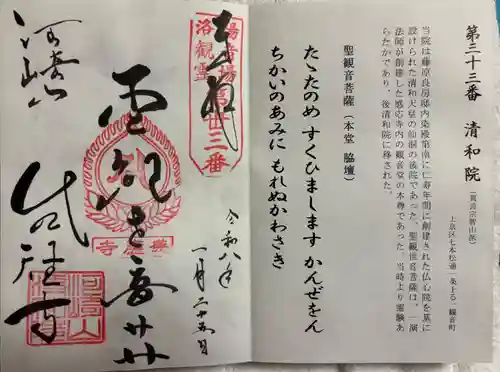 第三十三番 清和院
(真言宗智山派)
上京区七本松通一条上る一観音町
当院は藤原良房邸内染殿第南に仁寿年間に創建された仏心院を基に
設けられた清和天皇の仙洞の後院であった。聖観世音菩薩は、一演
法師が創建した感応寺内の観音堂の本尊であった。当時より霊験あ
らたかであり、後清和院に移された。
聖観音菩薩(本堂 脇壇)
たゞたのめ すくひまします かんぜをん
ちかいのあみに もれぬかわさき
奉拝
洛陽
観音
霊場
第卅三番
聖観世音
河崎山
感応寺
令和八年
一月二十五日